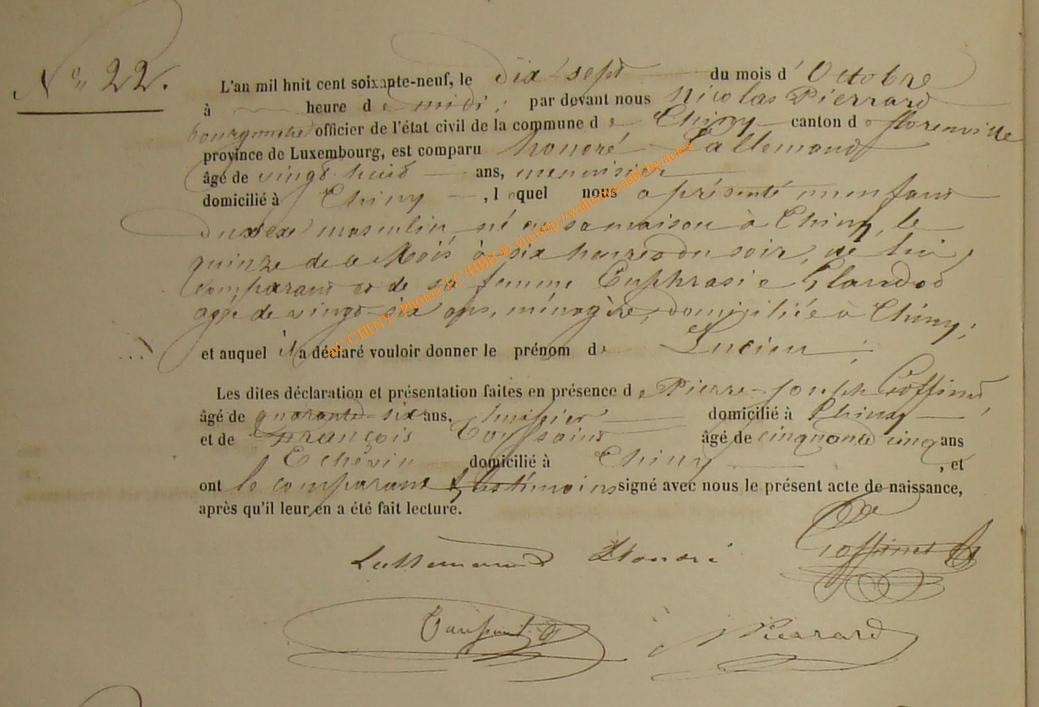 N° 22.
L'an mil huit cent soixante-neuf, le dix-sept du mois d' Octobre
à heure de midi, par devant nous Nicolas Pierrard
bourgmestre officier de l'état civil de la commune de Chiny canton de florenville
province de Luxembourg, est comparu honoré Lallemand
âgé de vingt huit ans, menuisier
domicilié à Chiny, lequel nous a présenté un enfant
du sexe masculin, né en sa maison à Chiny, le
quinze de ce Mois à six heures du soir, de lui
comparant et de sa femme Euphrasie
agée de vingt-six ans, ménagère, domiciliée à Chiny,
et auquel il a déclaré vouloir donner le prénom de Lucien
Les dites déclaration et présentation faites en présence de Pierre-Joseph Goffinet
âgé de quarante-six ans, huissier domicilié à Chiny,
et de François Toussaint âgé de cinquante cinq ans
Echévin domicilié à Chiny, et
ont le comparant & les témoins signé avec nous le présent acte de naissance,
après qu'il leur en a été fait lecture.
Lallemand Honoré Goffinet
Toussaint Pierrard